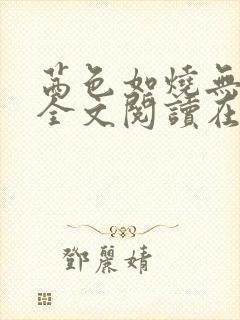 茜色如燒無
全文閱讀在
鄧麗婧